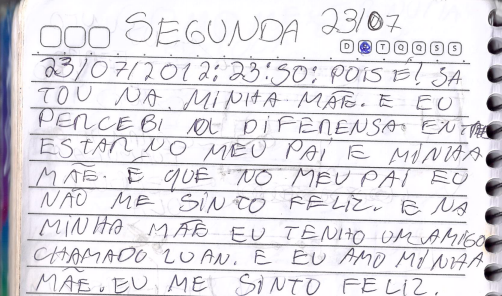 SEGUNDA 23/07
D S T Q Q S S
23/07/2012: 23:50: POIS E! SA
TOU NA MINHA MÃE. E EU
PERCEBI A DIFERENSA ENTRE
ESTAR NO MEU PAI E MINHA
MÃE. É QUE NO MEU PAI EU
NÃO ME SINTO FELIZ. E NA
MINHA MÃE EU TENHO UM AMIGO
CHAMADO LUAN. E EU AMO MINHA
MÃE. EU ME SINTO FELIZ.